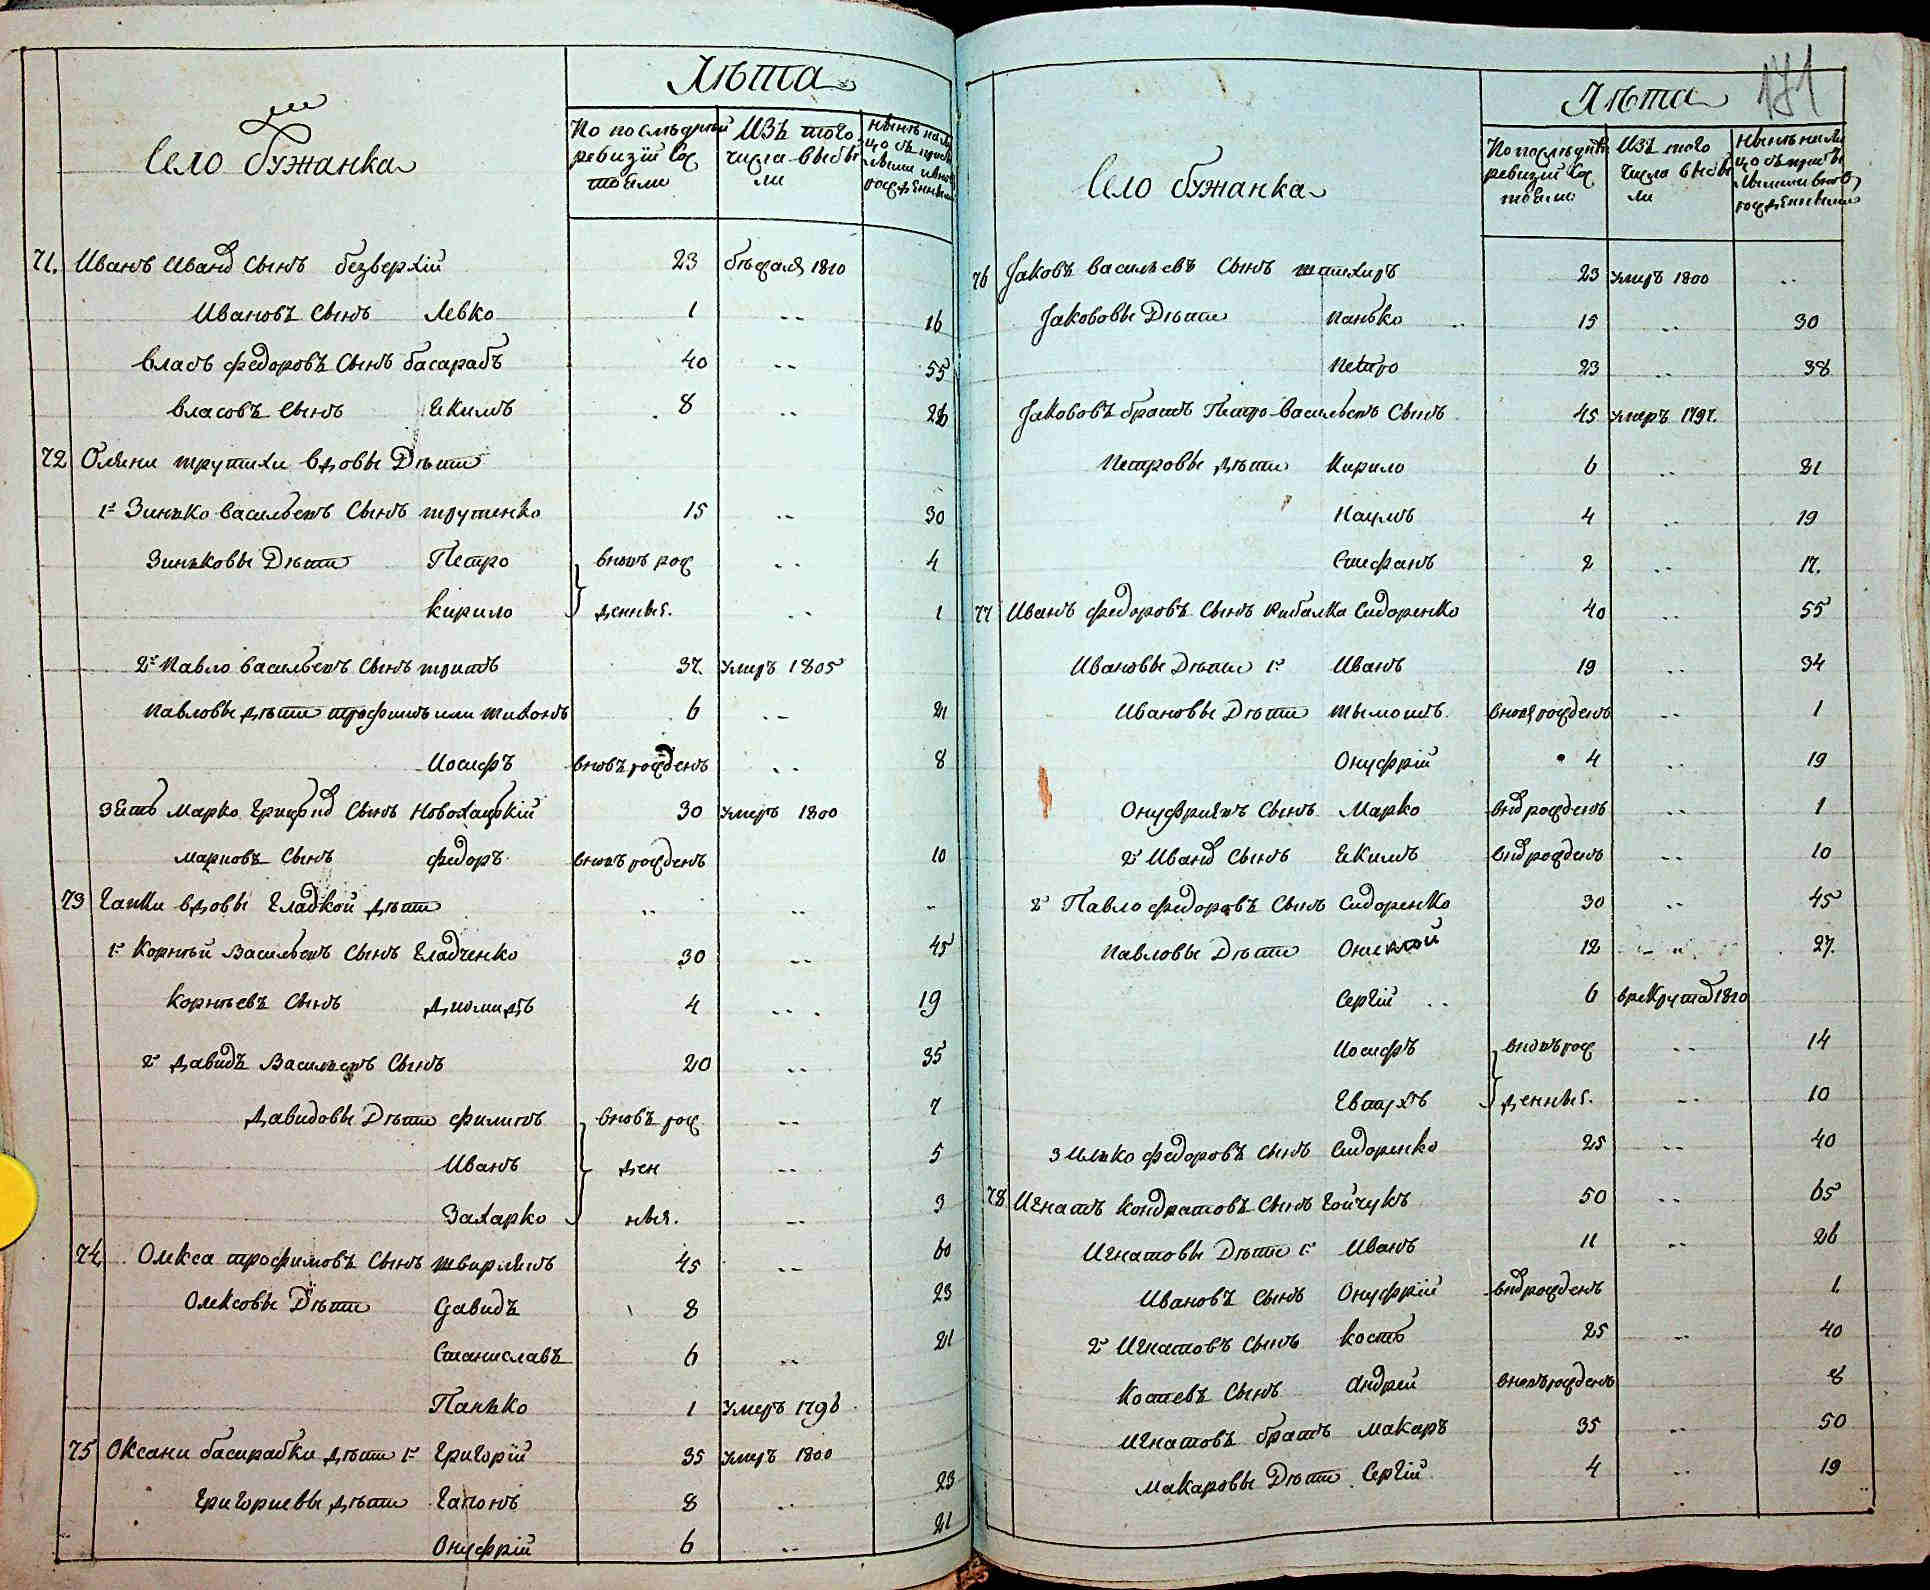 Село Бужанка
Лѣта
По послѣдней ревизіи состояли
Изъ того числа выбыли
Нынѣ на лицо съ прибылыми и вновь рожденными
71. Иванъ Ивановъ Сынъ безверхій 23 бѣжалъ 1810
Ивановъ Сынъ Левко 1 .. 16
Власъ федоровъ Сынъ басарабъ 40 .. 55
Власовъ Сынъ Екимъ 8 .. 23
72 Олѣни трутихи вдовы Дѣти
1й Зинько Васильевъ Сынъ трутенко 15 .. 30
Зиньковы Дѣти Петро вновь рож .. 4
Кирило денныя. .. 1
2й Павло Васильевъ Сынъ 37. умеръ 1805
Павловы Дѣти трофимъ или тихонъ 6 .. 21
Иосифъ вновь рожденъ .. 8
зять Марко Грицовъ Сынъ 30 умеръ 1800
марковъ Сынъ федоръ вновь рожденъ 10
73 Ганки вдовы Гладкой дѣти .. .. ..
1й Корнѣй Васильевъ Сынъ Гладченко 30 .. 45
Корнѣевъ Сынъ Диомидъ 4 .. 19
2й Давидъ Васильевъ Сынъ 20 .. 35
Давидовы Дѣти филипъ вновь рож .. 7
Иванъ ден .. 5
Захарко ныя. .. 3
74 Олекса трофимовъ Сынъ 45 .. 60
Олексовы Дѣти Давидъ 8 23
Станиславъ 6 .. 21
Панько 1 умеръ 1796
75 Оксани басарабки дѣти 1й Григорій 35 умеръ 1800
Григориевы дѣти Гапонъ 8 .. 23
Онуфрій 6 .. 21
171
Село Бужанка
Лѣта
По послѣдней ревизіи состояли
Изъ того числа выбыли
Нынѣ на лицо съ прибылыми и вновь рожденными
76 Яковъ Васильевъ Сынъ 23 умеръ 1800 ..
Якововы Дѣти Панько 15 .. 30
Петро 23 .. 38
Якововъ братъ Петро Васильевъ Сынъ 45 умеръ 1797.
Петровы дѣти Кирило 6 .. 21
Наумъ 4 .. 19
Стефанъ 2 .. 17.
77 Иванъ федоровъ Сынъ Рибалка Сидоренко 40 .. 55
Ивановы Дѣти 1й Иванъ 19 .. 34
Ивановы Дѣти тымошъ вновь рожденъ .. 1
Онуфрій 4 .. 19
Онуфріевъ Сынъ Марко вновь рожденъ .. 1
2й Ивановъ Сынъ Екимъ вновь рожденъ .. 10
2й Павло федоровъ Сынъ Сидоренко 30 .. 45
Павловы Дѣти 12 .. 27.
Сергій 6 в рекрутахъ 1810
Иосифъ вновь рож .. 14
Евтухъ денныя. .. 10
3 Илько федоровъ Сынъ Сидоренко 25 .. 40
78 Игнатъ Кондратовъ Сынъ Гойчукъ 50 .. 65
Игнатовы Дѣти 1й Иванъ 11 .. 26
Ивановъ Сынъ Онуфрій вновь рожденъ 1.
2й Игнатовъ Сынъ Кость 25 .. 40
Костевъ Сынъ Андрей вновь рожденъ 8
Игнатовъ братъ Макаръ 35 .. 50
Макаровы Дѣти Сергій 4 .. 19